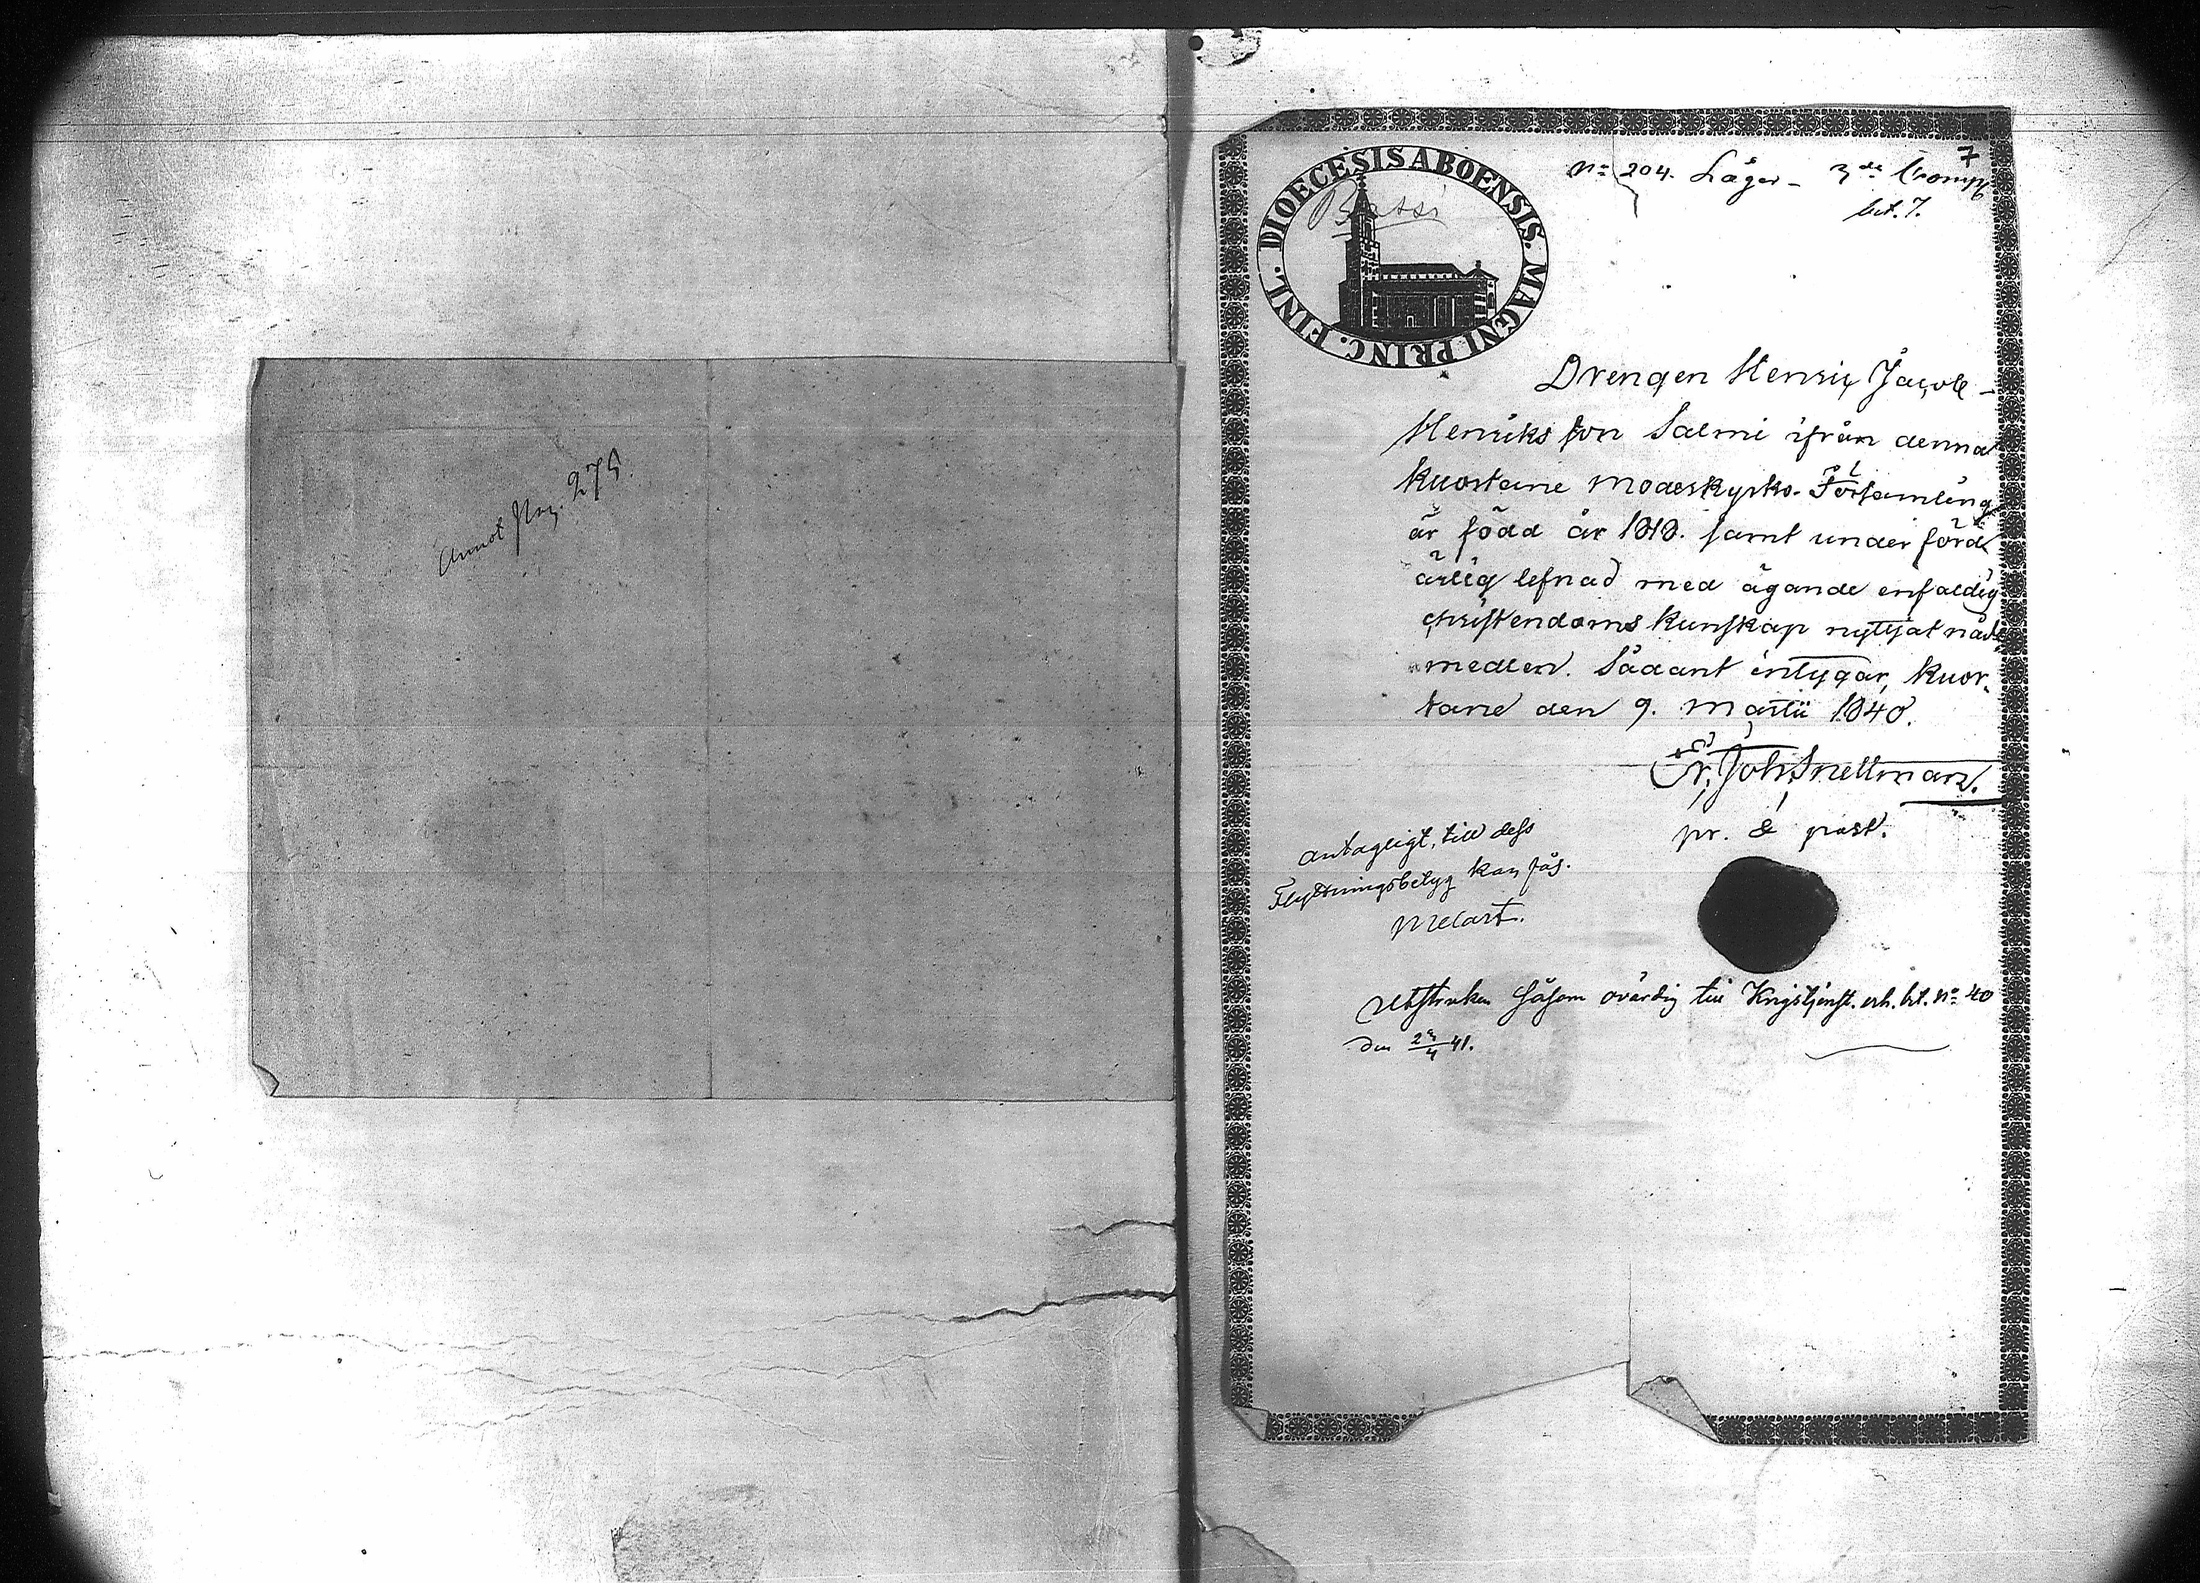 Annot Pag. 275.
7
No 204. Läger - 3de Comp
Lit. 7.
DIOECESIS ABOENSIS. MAGNI PRINC. FINL.
Bassi
Drengen Henric Jacob
Henriksson Salmi ifrån denna
Kuortane Moderkyrko-Församling
är född år 1818. samt under förd
ärlig lefnad med ägande enfaldig
christendoms kunskap nyttjat nåde
medlen. Sådant intygar, Kuor-
tane den 9. Martii 1840.
Joh. Snellman.
pr. & past.
antagligt, till dess
Flyttningsbetyg kan fås.
Melart.
Utstruken såsom ovärdig till Krigstjenst. enl. bref. No 40
den 41.